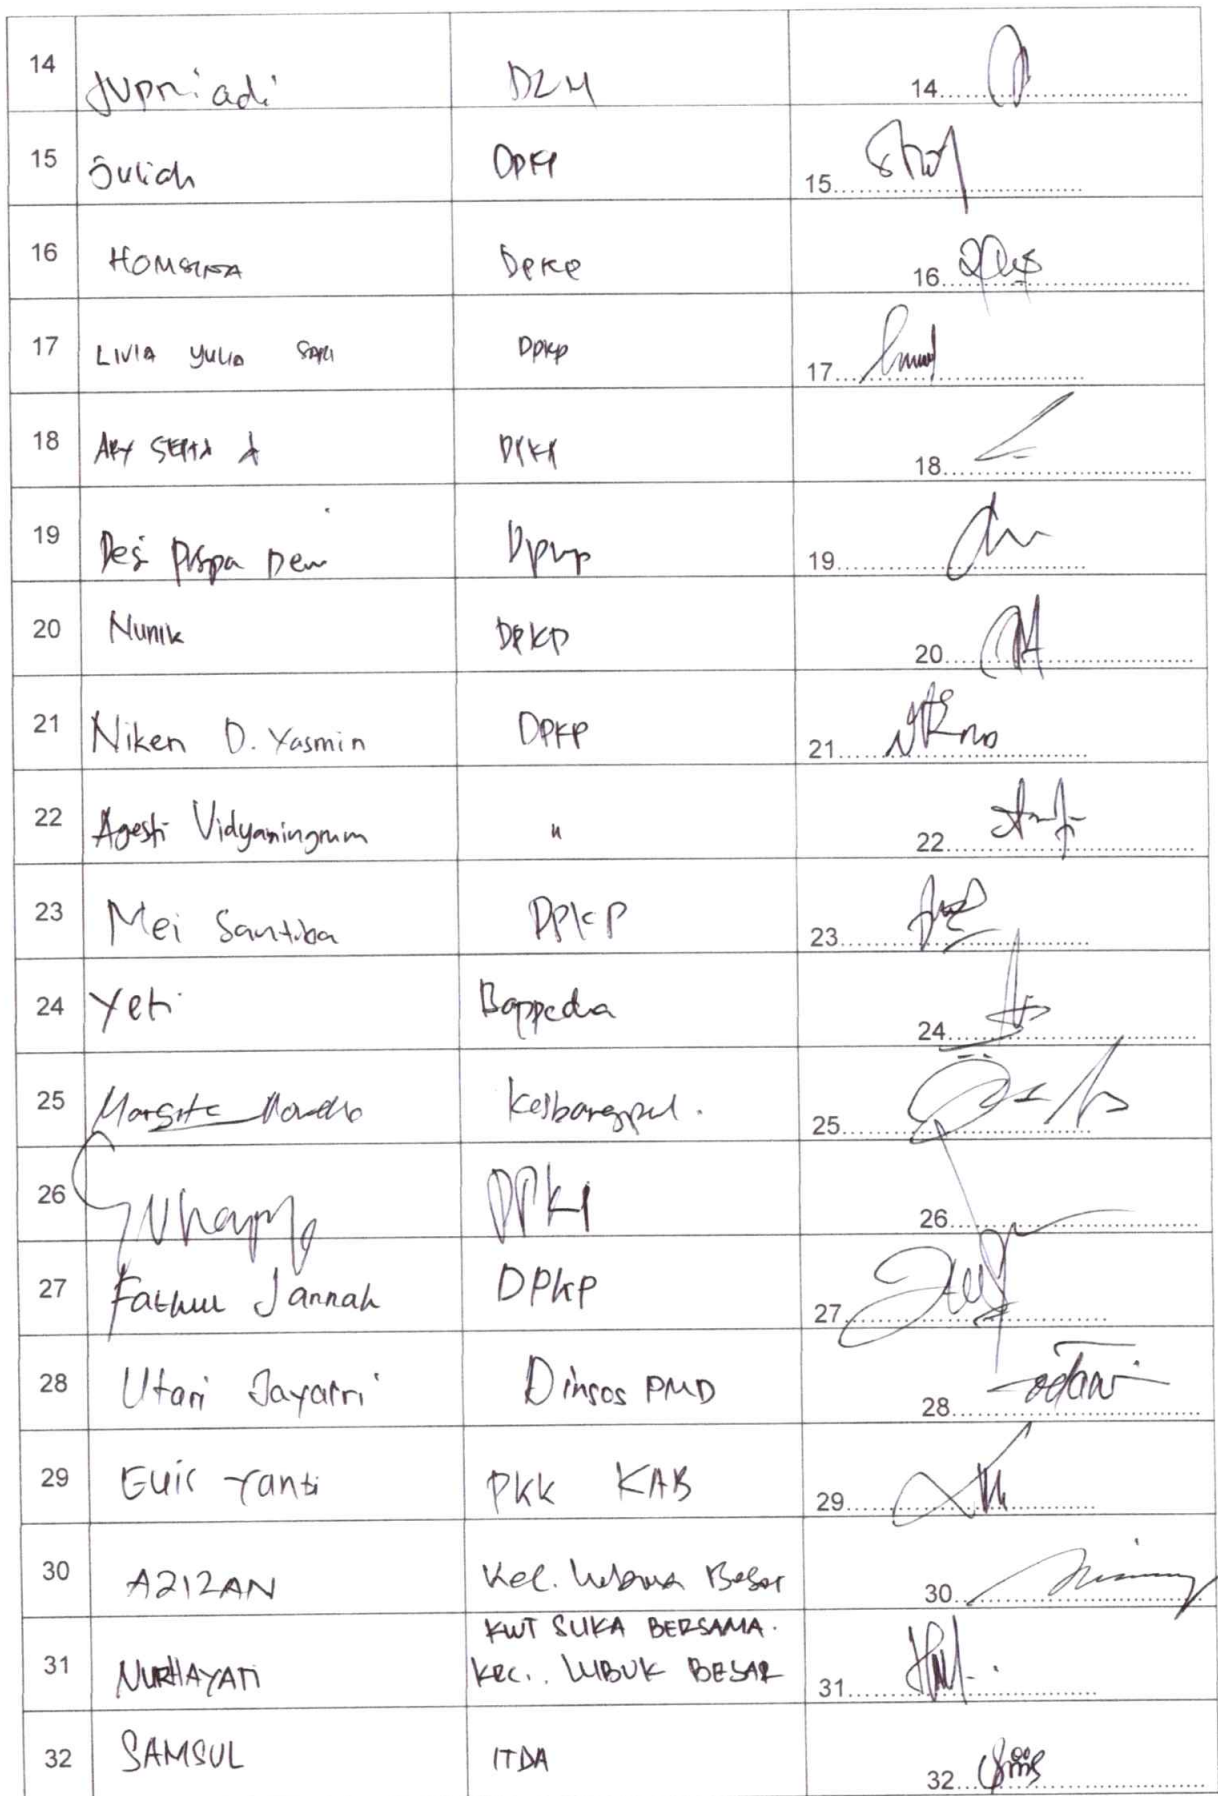 14 Jupriadi DLH 14
15 Suliah DPKP 15
16 HOMSINA DPKP 16
17 LIVIA YULIA SARI DPKP 17
18 ARY SEPTA A DPKP 18
19 Desi Puspa Dewi Dpkp 19
20 Nunik DPKP 20
21 Niken D. Yasmin DPKP 21
22 Agesti Vidyaningrum " 22
23 Mei Santiba DPKP 23
24 Yeti Bappeda 24
25 Kesbangpol. 25
26 DPKP 26
27 Fathul Jannah DPKP 27
28 Utari Jayatri Dinsos PMD 28
29 Euis Yanti PKK KAB 29
30 AZIZAN Kec. Lubuk Besar 30
31 NURHAYATI KWT SUKA BERSAMA.
Kec. LUBUK BESAR 31
32 SAMSUL ITDA 32